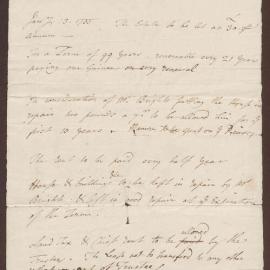 Jan.y 3. 1785. The Estate to be let at 30 £ pr
annum
For a Term of 99 Years renewable every 21 Year
paying one Guinea on every renewal
In consideration of Mr Bright putting the House in
repair two pounds a yr to be allowed him for ye
first 10 years &
The Rent to be paid every half Year
House & buildings to be kept in repair by Mr
Bright & left in good repair at ye Expiration
of the Term.
Land Tax & Chief Rent to be allowed by the
Trustees. The Lease not to transfer'd to any other
of Trustees